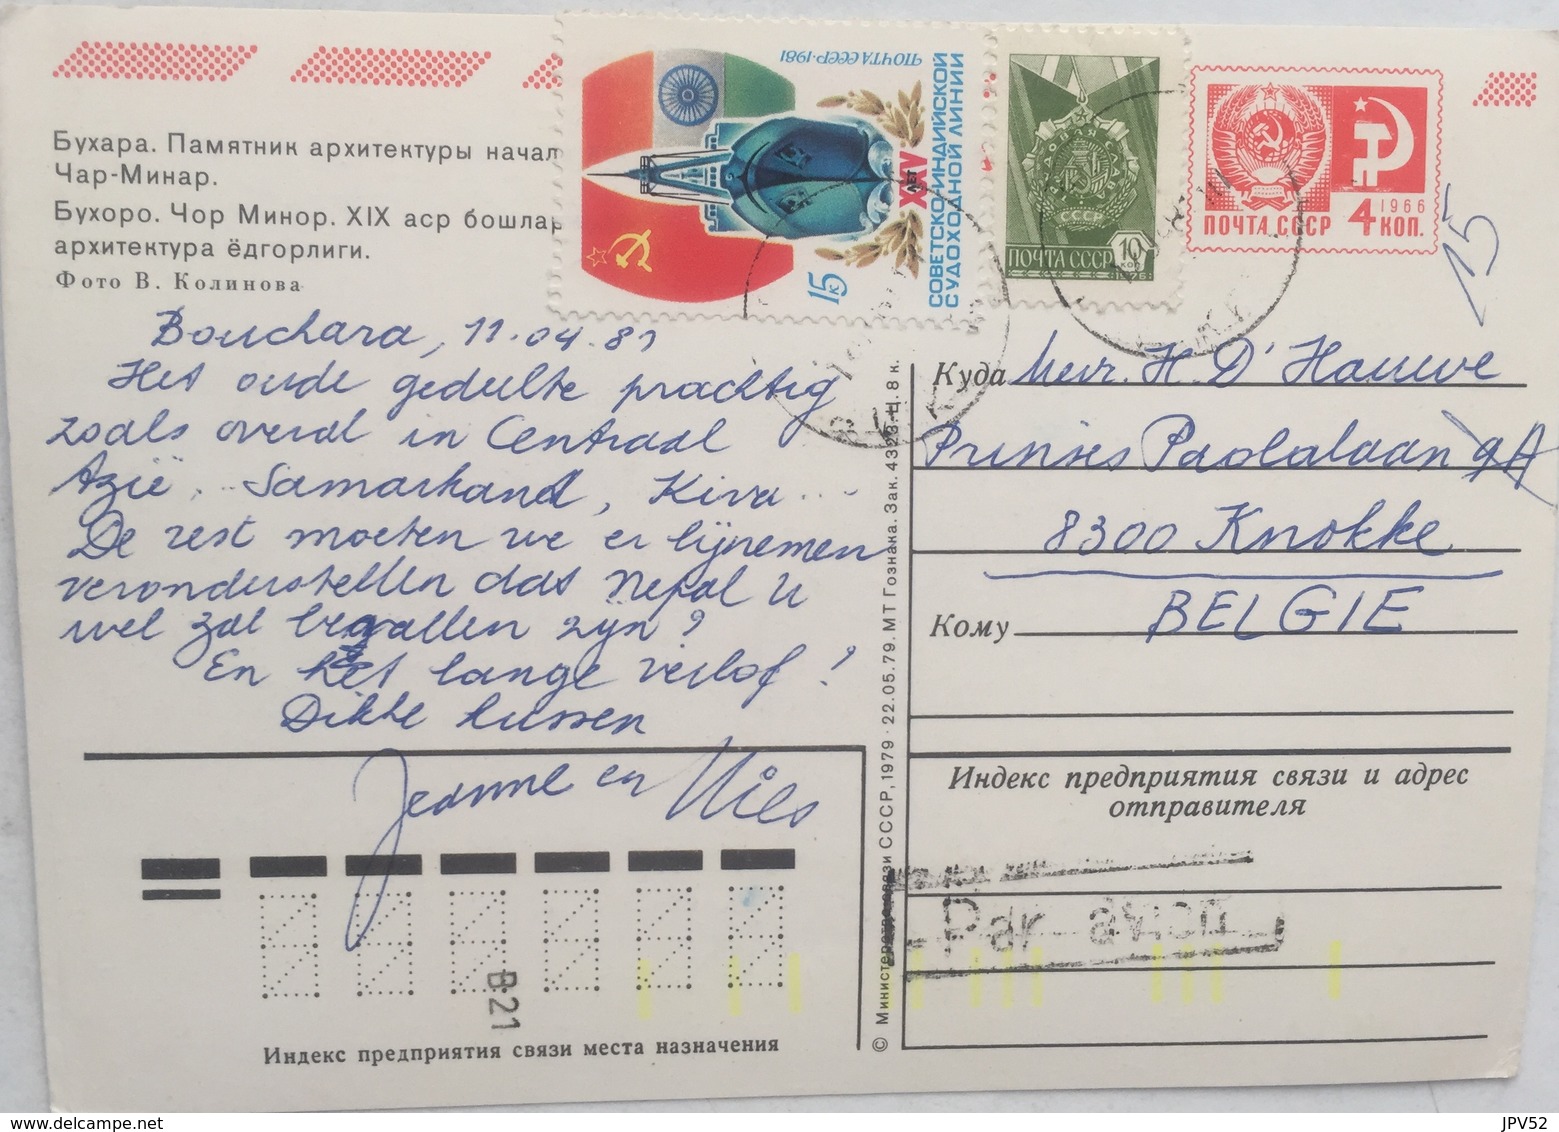 Бухара. Памятник архитектуры начал
Чар-Минар.
Бухоро. Чор Минор. XIX аср бошлар
архитектура ёдгорлиги.
Фото В. Колинова
ПОЧТА СССР·1981
XXV ЛЕТ
СОВЕТСКО-ИНДИЙСКОЙ
СУДОХОДНОЙ ЛИНИИ
15 к
ТРУДОВАЯ СЛАВА
СССР
ПОЧТА СССР 10 коп
1976
1966
ПОЧТА СССР 4 КОП.
15
Bouchara, 11.04.81
Het oude gedeelte prachtig
zoals overal in Centraal
Azië, Samarkand, Kiva...
De rest moeten we er bijnemen
veronderstellen dat Nepal u
wel zal bevallen zijn?
En het lange verlof?
Dikke kussen
Jeanne en Nils
Куда Mevr. H. D'Hauwe
Prinses Paolalaan 9A
8300 Knokke
Кому BELGIE
Индекс предприятия связи и адрес
отправителя
© Министерство связи СССР, 1979 · 22.05.79. МТ Гознака. Зак. 4323. Ц. 8 к.
B21
Индекс предприятия связи места назначения
JPV52